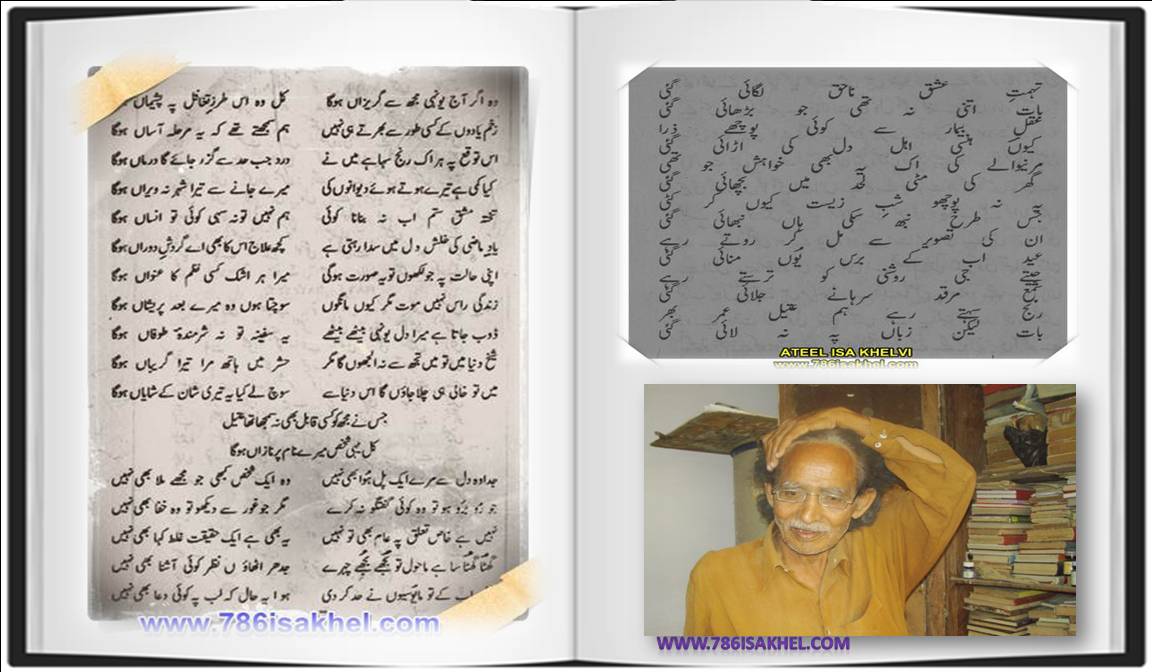 وہ اگر آج یونہی مجھ سے گریزاں ہوگا کل وہ اس طرزِ تغافل پہ پشیماں
زخم یادوں کے کسی طور سے بھرتے ہی نہیں ہم سمجھتے تھے کہ یہ مرحلہ آساں ہوگا
اس توقع پہ ہر اک رنج سہا ہے میں نے درد جب حد سے گزر جائے گا درماں ہوگا
کیا کمی ہے تیرے ہوتے ہوئے دیوانوں کی میرے جانے سے تیرا شہر نہ ویراں ہوگا
تختہ مشق ستم اب نہ بنانا کوئی ہم نہیں تو نہ سہی کوئی تو انساں ہوگا
یادِ ماضی کی خلش دل میں سدا رہتی ہے کچھ علاج اس کا بھی اے گردشِ دوراں ہوگا
اپنی حالت پہ جو لکھوں تو یہ صورت ہوگی میرا ہر اشک کسی نظم کا عنواں ہوگا
زندگی راس نہیں موت مگر کیوں مانگوں سوچتا ہوں وہ میرے بعد پریشاں ہوگا
ڈوب جاتا ہے میرا دل یونہی بیٹھے بیٹھے یہ سفینہ تو نہ شرمندۂ طوفاں ہوگا
شیخ دنیا میں تو میں تجھ سے نہ الجھوں گا مگر حشر میں ہاتھ مرا تیرا گریباں ہوگا
میں تو خالی ہی چلا جاؤں گا اس دنیا سے سوچ لے کیا یہ تیری شان کے شایاں ہوگا
جس نے مجھ کو کسی قابل بھی نہ سمجھا تھا عتیل
کل یہی شخص میرے نام پر نازاں ہوگا
جدا وہ دل سے مرے ایک پل ہوا بھی نہیں وہ ایک شخص کبھی جو مجھے ملا بھی نہیں
جو رُو برُو ہو تو وہ کوئی گفتگو نہ کرے مگر جو غور سے دیکھو تو وہ خفا بھی نہیں
نہیں ہے خاص تعلق پہ عام بھی تو نہیں یہ بھی ہے ایک حقیقت غلط کہا بھی نہیں
گھٹا گھٹا سا ہے ماحول تو بجھے بجھے چہرے جدھر اٹھاؤں نظر کوئی آشنا بھی نہیں
اب کے تو مایوسیوں نے حد کر دی ہوا یہ حال کہ لب پہ کوئی دعا بھی نہیں
www.786isakhel.com
تہمتِ عشق ناحق لگائی گئی
بات اتنی نہ تھی جو بڑھائی گئی
عقلِ بیمار سے کوئی پوچھے ذرا
کیوں ہنسی اہل دل کی اڑائی گئی
مرنیوالے کی اک یہ بھی خواہش جو تھی
گھر کی مٹی لحد میں بچھائی گئی
یہ نہ پوچھو شبِ زیست کیوں کر کٹی
جس طرح نبھ سکی ہاں نبھائی گئی
ان کی تصویر سے مل کر روتے رہے
عید اب کے برس یوں منائی گئی
جیتے جی روشنی کو ترستے رہے
شمع مرقد سرہانے جلائی گئی
رنج سہتے رہے ہم عتیل عمر بھر
بات لیکن زباں پہ نہ لائی گئی
ATEEL ISA KHELVI
www.786isakhel.com
WWW.786ISAKHEL.COM